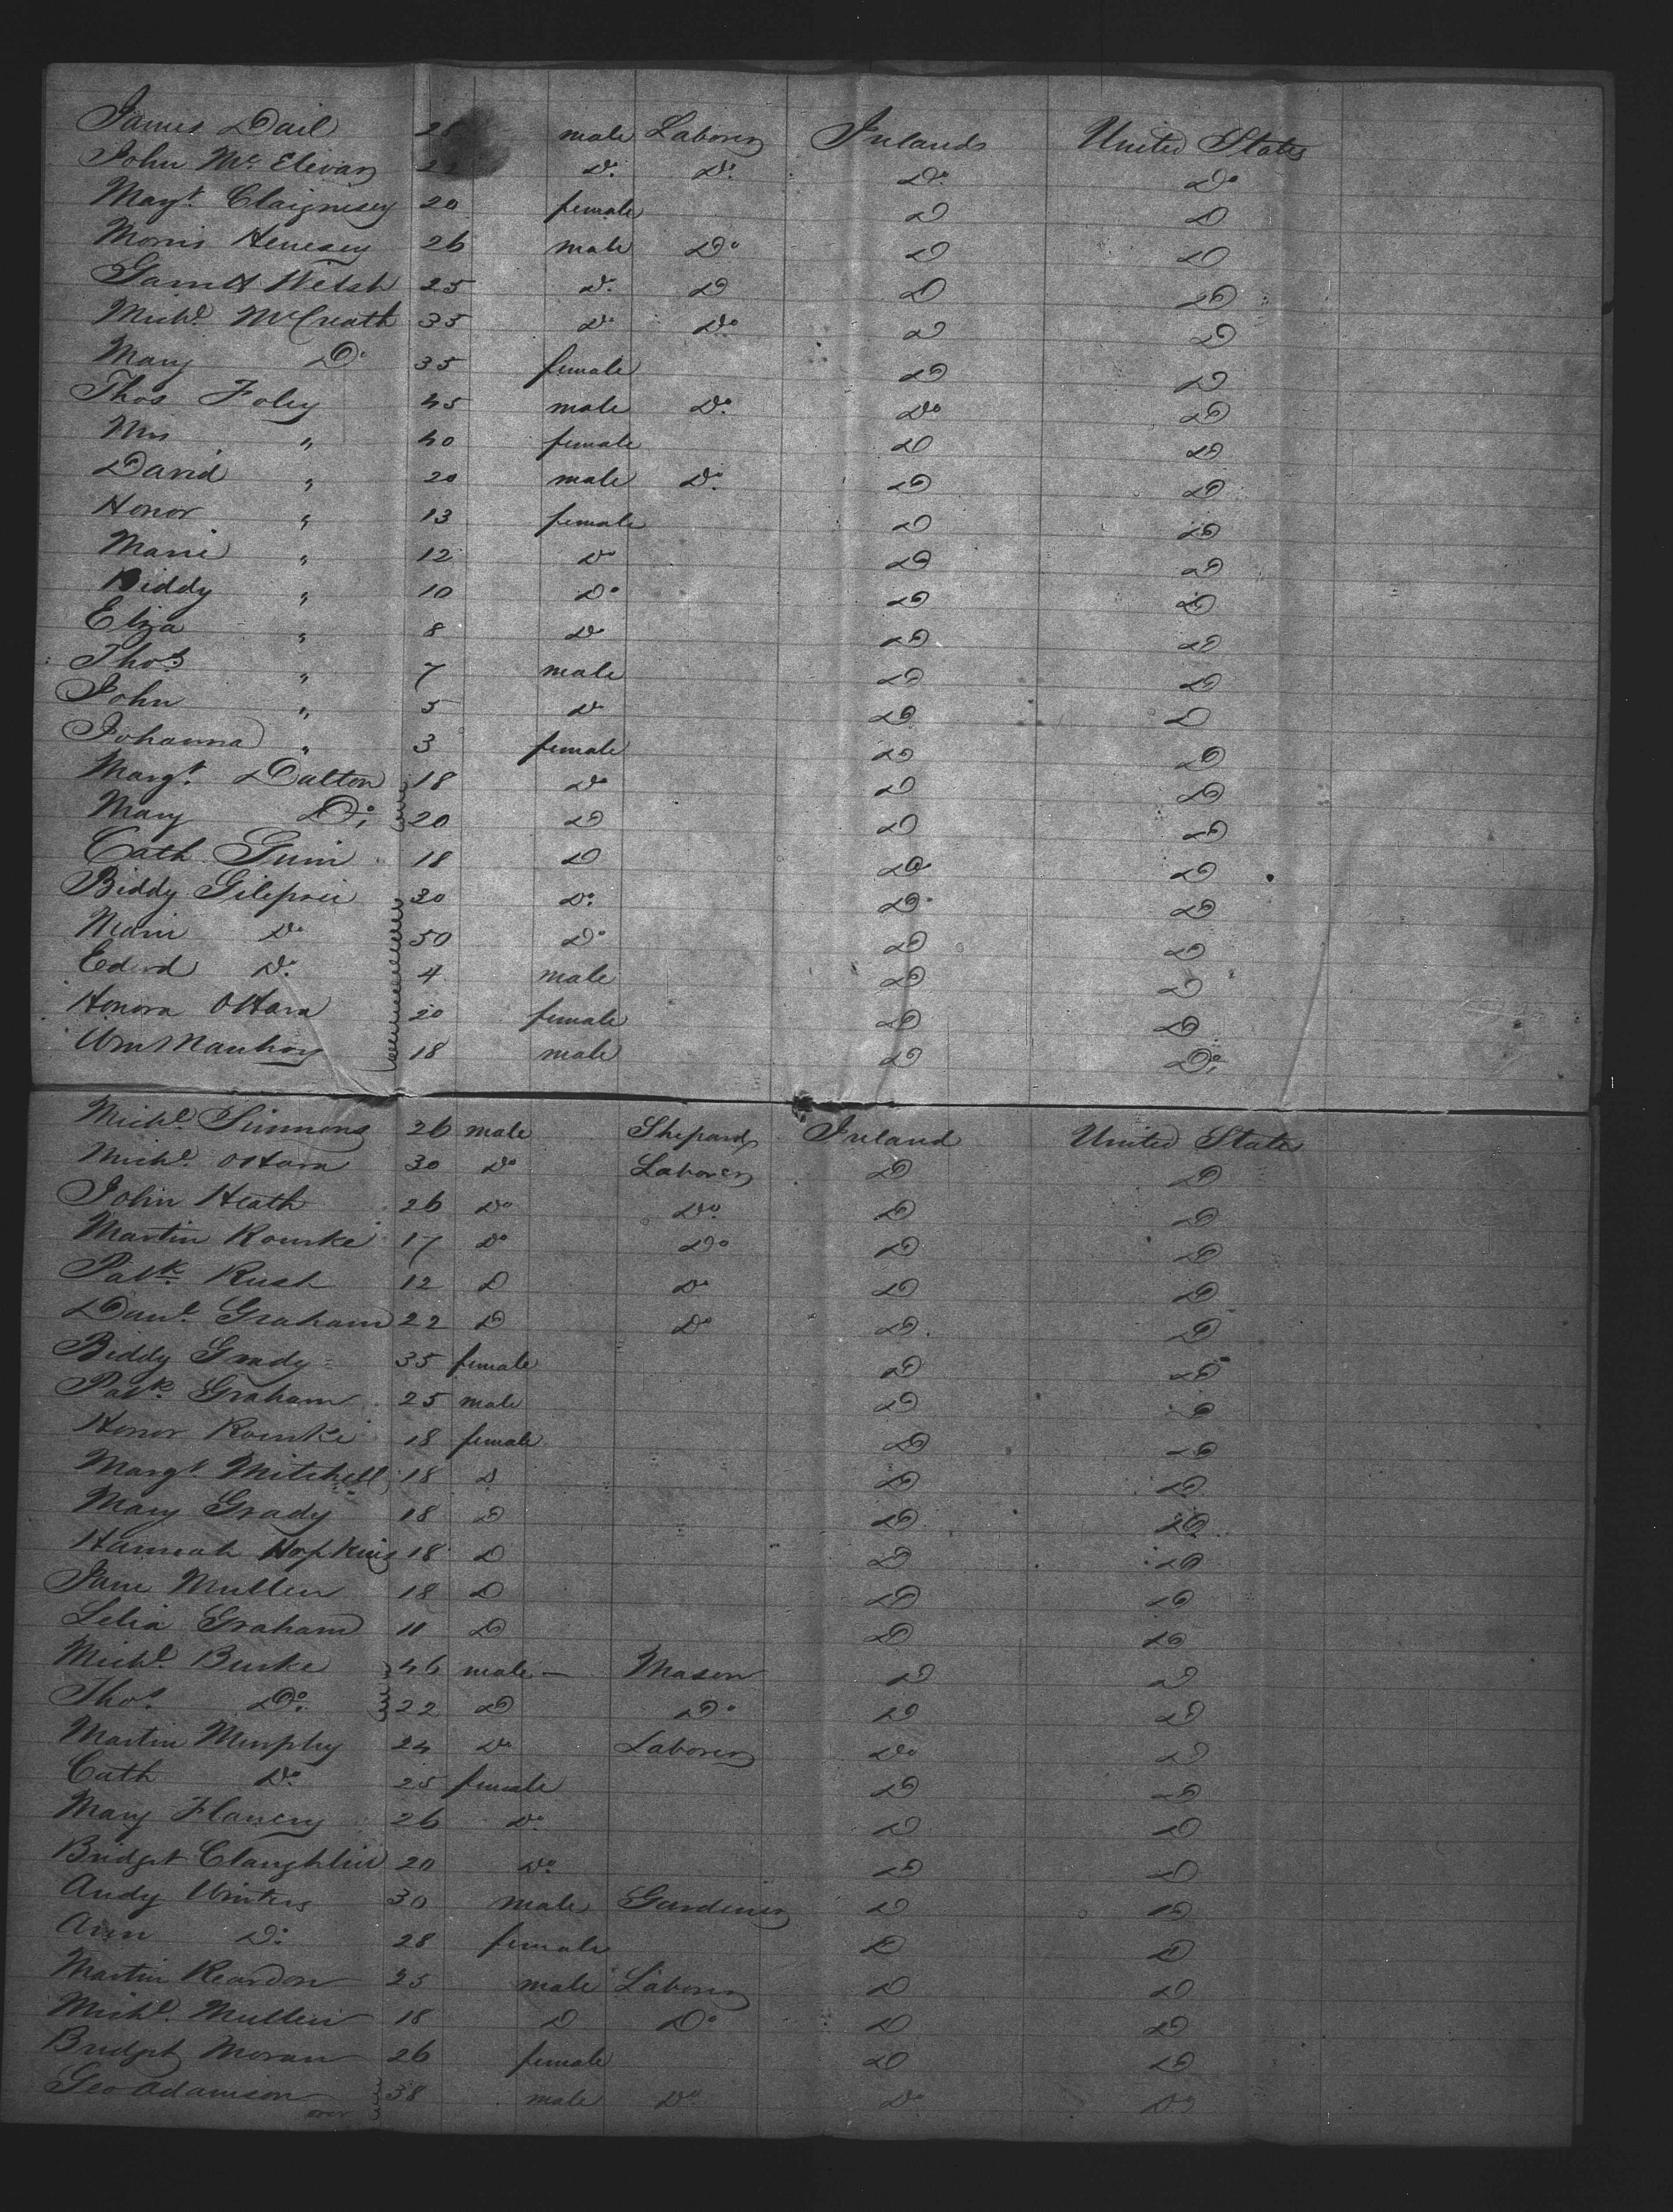 James Dail 28 male Laborer Ireland United States
John Mc Elevan 22 Do. Do. Do. Do
Magt. Claignisey 20 female D D
Morris Henesey 26 male Do D D
Garrett Welsh 25 Do. D D D
Michl. McCreath 35 Do Do D D
Mary Do 35 female D D
Thos Foley 45 male Do. Do D
Mrs " 40 female D D
David " 20 male Do. D D
Honor " 13 female D D
Marie " 12 Do D D
Biddy " 10 Do D D
Eliza " 8 Do D D
Thos. " 7 male D D
John " 5 Do D D
Johanna " 3 female D D
Margt. Dalton 18 Do D D
Mary Do. 20 D D D
Cath Guin 18 D D D
Biddy 30 Do. D. D
Do 50 Do D D
Edwd Do. 4 male D D
Honora OHara 20 female D D
Wm 18 male D Do.
Michl. Simmons 26 male Shepard Ireland United States
Michl. OHara 30 Do Laborer D D
John Heath 26 Do Do. D D
Martin Rourke 17 Do Do D D
Patk. Rush 12 D Do D D
Danl. Graham 22 D Do D. D
Biddy Grady 35 female D D
Patk. Graham 25 male D D
Honor Rourke 18 female D D
Margt. Mitchell 18 D D D
Mary Grady 18 D D D
Hannah Hopkins 18 D D D
Jane Mullen 18 D D D
Lelia Graham 11 D D D
Michl. Burke 46 male — Mason D D
Thos. Do. 22 D Do D D
Martin Murphy 24 Do Laborer Do D
Cath Do. 25 female D D
Mary Flanery 26 Do. D D
Bridget Claughlin 20 Do. D D
Andy Winters 30 male Gardener D D
Ann Do. 28 female D D
Martin Reardon 25 male Laborer D D
Michl. Mullen 18 D Do D D
Bridget Moran 26 female D D
Geo Adamson 38 male Do Do Do
over